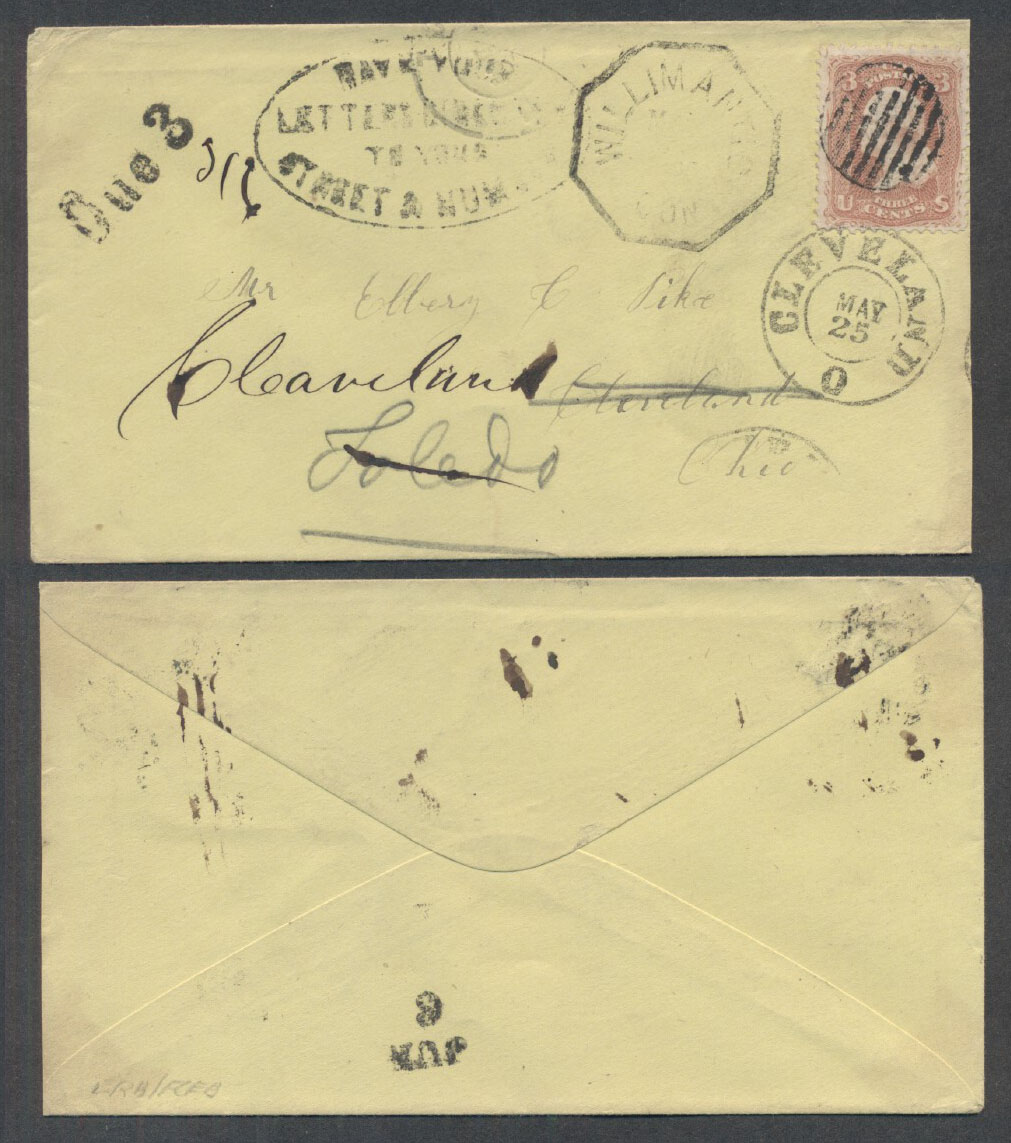 Due 3
HAVE YOUR
LETTERS DIRECTED
TO YOUR
STREET & NUM
WILLIMANTIC
CON
3 3
U THREE CENTS S
CLEVELAND
MAY
25
O
Mr Elbery C Pike
Claveland Cleveland
Toledo Ohio
JUN
6